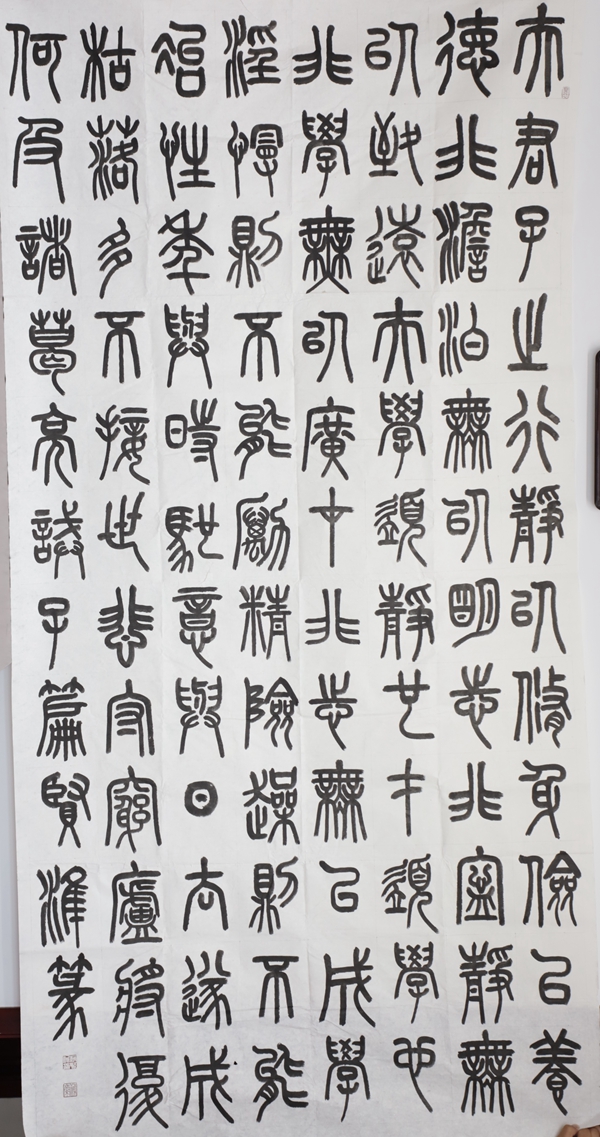 夫君子之行靜以修身儉以養
德非澹泊無以明志非寧靜無
以致遠夫學須靜也才須學也
非學無以廣才非志無以成學
淫慢則不能勵精險躁則不能
冶性年與時馳意與日去遂成
枯落多不接世悲守窮廬將復
何及諸葛亮誡子篇賢淮篆